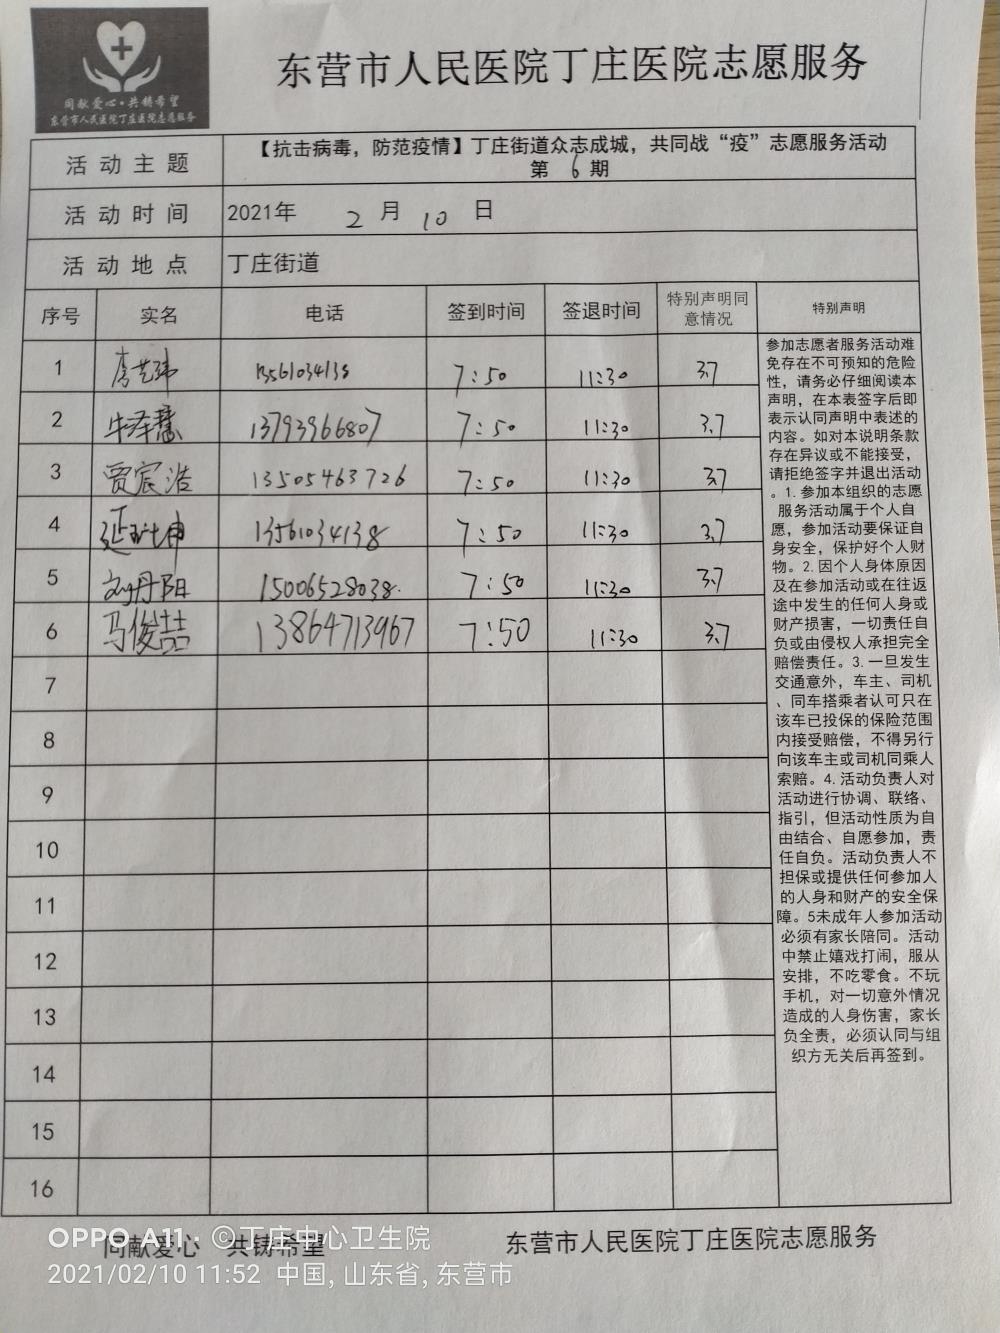 同献爱心·共铸希望
东营市人民医院丁庄医院志愿服务
东营市人民医院丁庄医院志愿服务
活动主题 【抗击病毒，防范疫情】丁庄街道众志成城，共同战“疫”志愿服务活动
第 6 期
活动时间 2021年 2 月 10 日
活动地点 丁庄街道
序号 实名 电话 签到时间 签退时间 特别声明同意情况 特别声明
1 13561034138 7:50 11:30 3.7
2 牛泽慧 13793966807 7:50 11:30 3.7
3 贾宸浩 13505463726 7:50 11:30 3.7
4 13561034138 7:50 11:30 3.7
5 刘丹阳 15006528038 7:50 11:30 3.7
6 马俊喆 13864713967 7:50 11:30 3.7
7
8
9
10
11
12
13
14
15
16
参加志愿者服务活动难
免存在不可预知的危险
性，请务必仔细阅读本
声明，在本表签字后即
表示认同声明中表述的
内容。如对本说明条款
存在异议或不能接受，
请拒绝签字并退出活动
。1.参加本组织的志愿
服务活动属于个人自
愿，参加活动要保证自
身安全，保护好个人财
物。2.因个人身体原因
及在参加活动或在往返
途中发生的任何人身或
财产损害，一切责任自
负或由侵权人承担完全
赔偿责任。3.一旦发生
交通意外，车主、司机
、同车搭乘者认可只在
该车已投保的保险范围
内接受赔偿，不得另行
向该车主或司机同乘人
索赔。4.活动负责人对
活动进行协调、联络、
指引，但活动性质为自
由结合、自愿参加，责
任自负。活动负责人不
担保或提供任何参加人
的人身和财产的安全保
障。5未成年人参加活动
必须有家长陪同。活动
中禁止嬉戏打闹，服从
安排，不吃零食。不玩
手机，对一切意外情况
造成的人身伤害，家长
负全责，必须认同与组
织方无关后再签到。
同献爱心 共铸希望 东营市人民医院丁庄医院志愿服务
OPPO A11·©丁庄中心卫生院
2021/02/10 11:52 中国, 山东省, 东营市